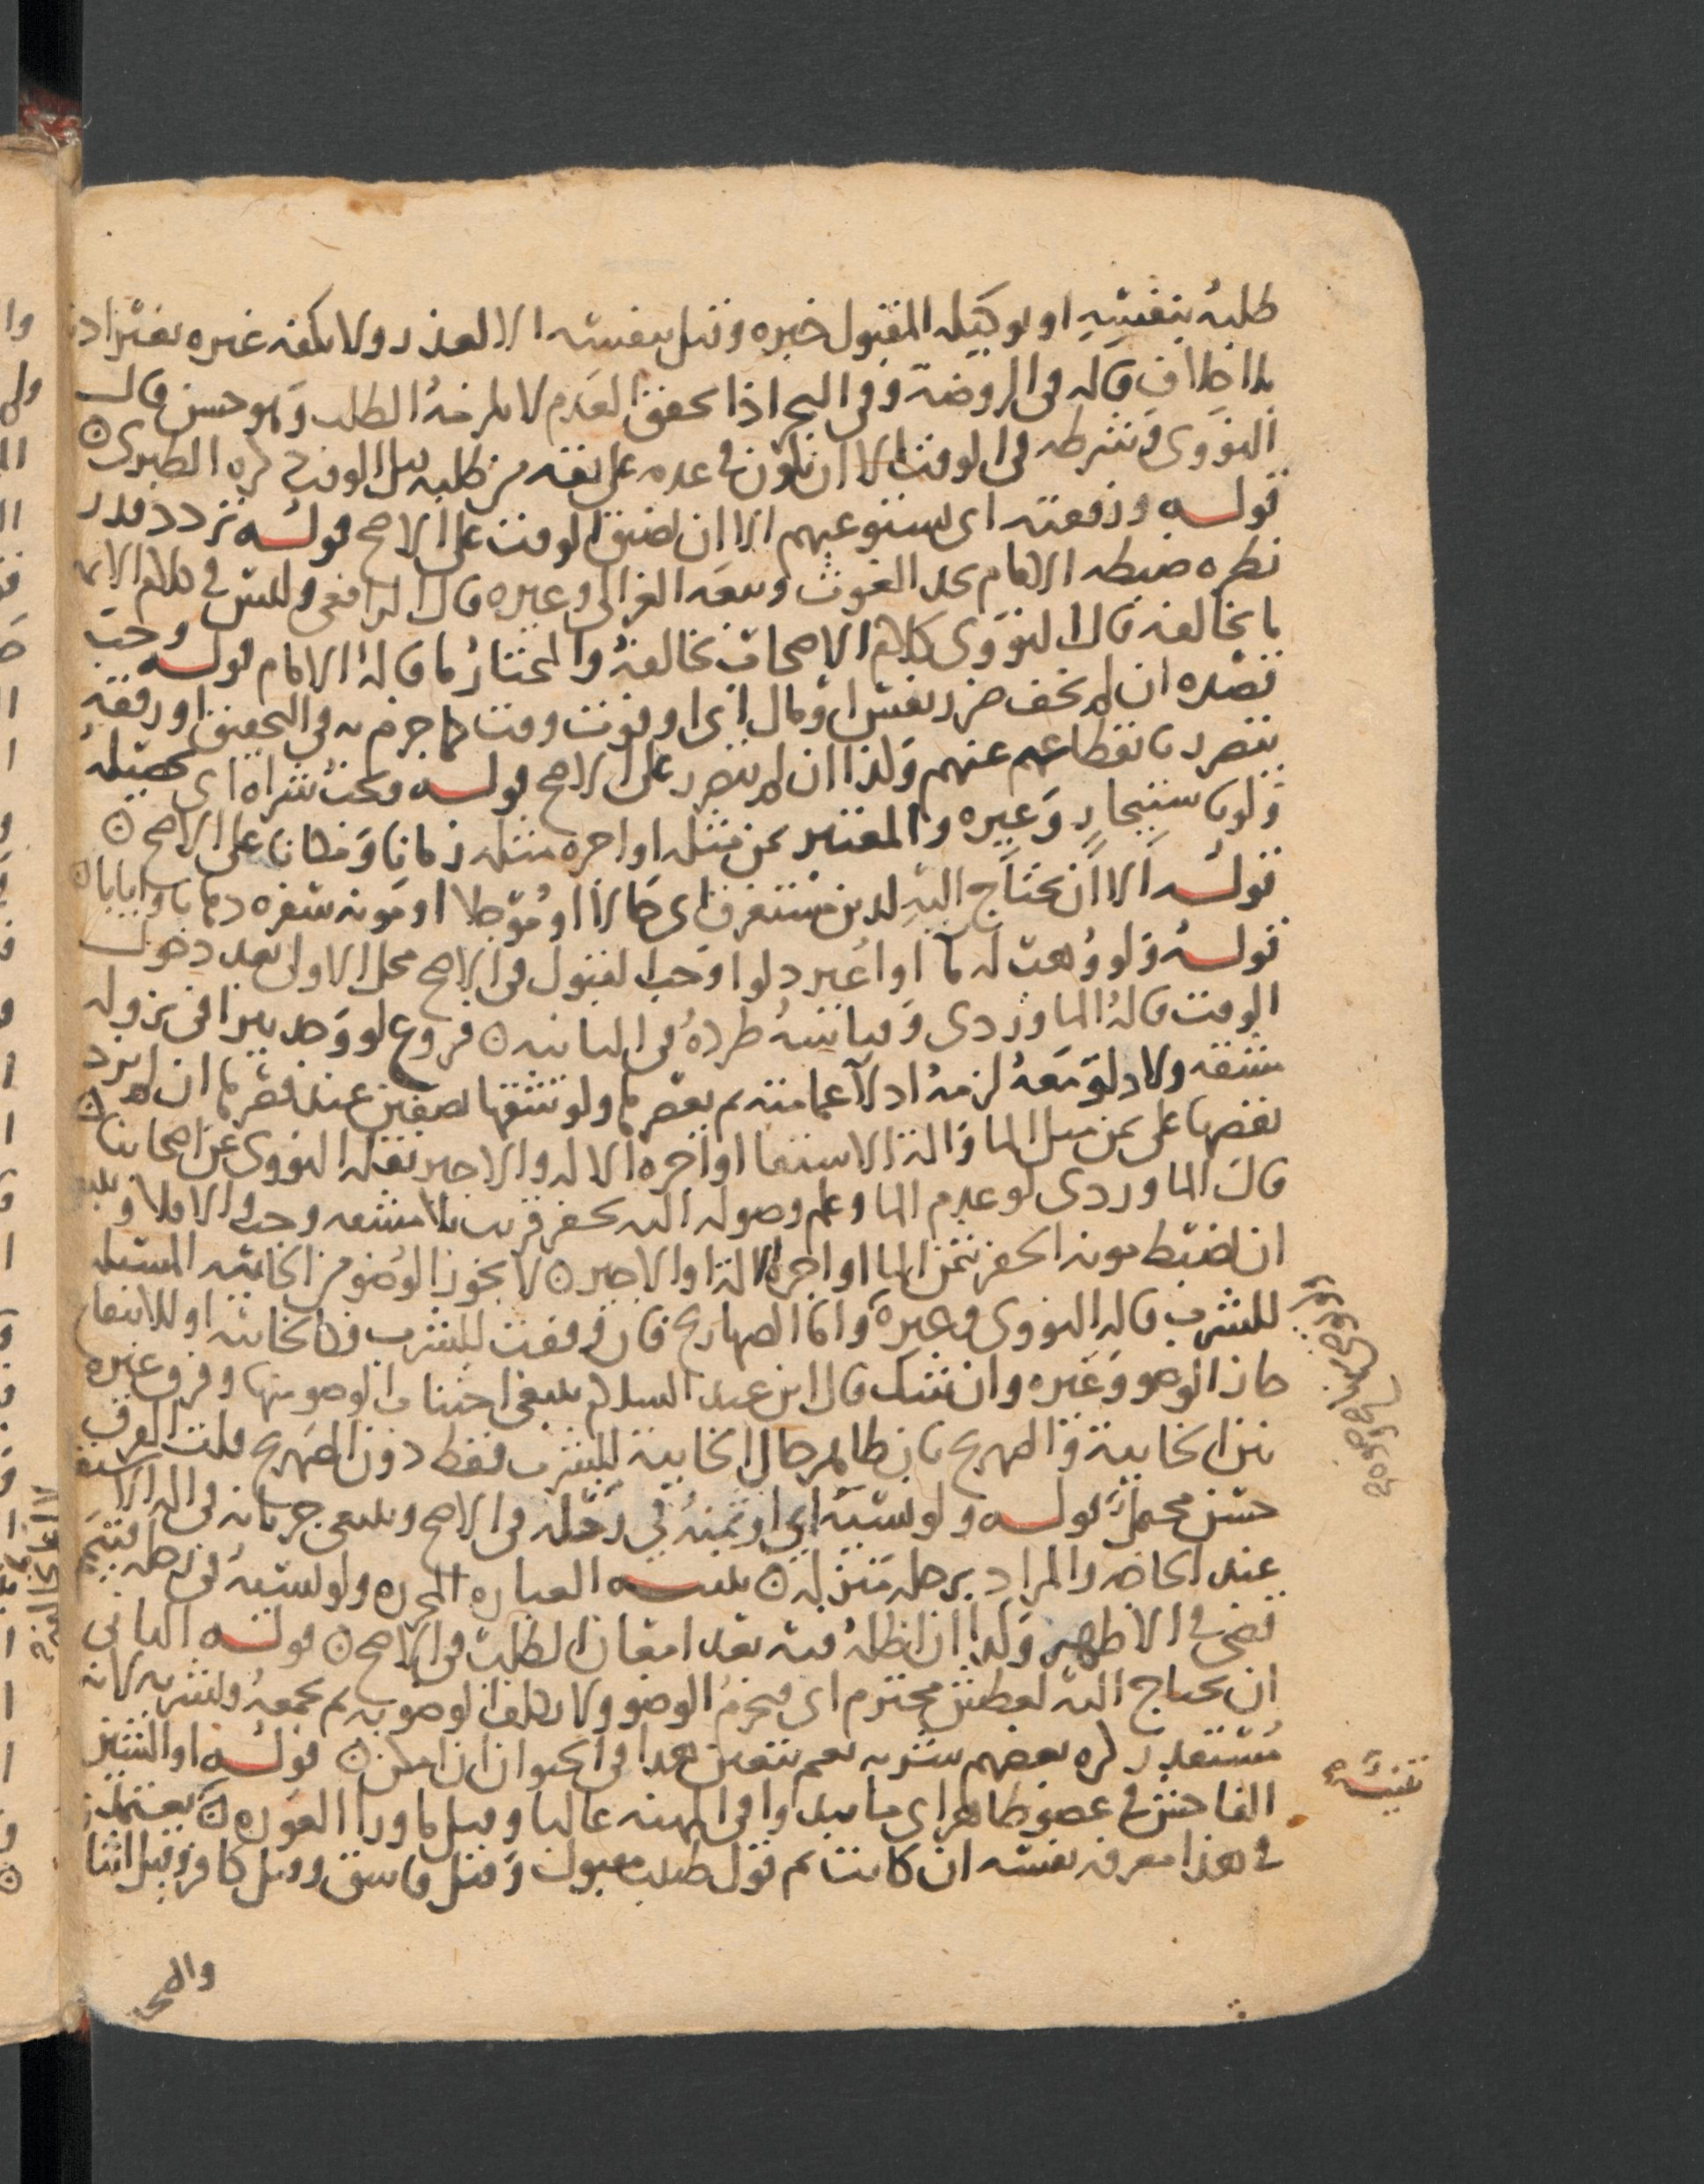 طلبه بنفسه او بوكيله المقبول خبره وقيل بنفسه الا لعذر ولا يكفيه غيره بغير اذن
بلا خلاف قاله في الروضة وفي البحر اذا تحقق العدم لا يلزمه الطلب وهو حسن قال
النووي وشرطه في الوقت الا ان يكون في عدم على ثقة من طلبه قبل الوقت ذكره الطبري
قوله ورفقته اى يستوعبهم الا ان ضيق الوقت على الاصح قوله تردد قدر
نظره ضبطه الامام بحد الغوث وتبعه الغزالي وغيره قال الرافعي وليس في كلام الائمة
ما يخالفه قال النووي كلام الاصحاب يخالفه والمختار ما قاله الامام قوله وجب
قصده ان لم يخف ضرر نفس او مال اى او فوت وقت كما جزم به في التحقيق او رفقه
يتضرر بانقطاعه عنهم وكذا ان لم يتضرر على الاصح قوله ويجب شراه اى تحصيله
ولو باستيجار وغيره والمعتبر ثمن مثله او اجرة مثله زمانا ومكانا على الاصح
قوله الا ان يحتاج اليه لدين مستغرق اى حالا او مؤجلا او مونة سفره ذهابا وايابا
قوله ولو وهب له ما او اعير دلوا وجب القبول في الاصح محل الاول بعد دخول
الوقت قاله الماوردي وقياسه طرده في الثانية فروع لو وجد بيرا في نزوله
مشقه ولا دلو معه لزمه ادلا عمامته ثم يعصرها ولو شقها نصفين عند قصرها ان لم يزد
نقصها على ثمن مثل الما والة الاستقا او اجرة الالة والاجير نقله النووي عن اصحابنا
قال الماوردي لو عدم الما وعلم وصوله اليه بحفر قريب بلا مشقه وجب والا فلا
ان يضبط مونة الحفر بثمن الما او اجرة الالة او الاجير لا يجوز الوضو من الخابية المسبلة
للشرب قاله النووي وغيره واما الصهاريج فان وقفت للشرب فكالخابية او للانتفاع
جاز الوضو وغيره وان شك قال ابن عبد السلام ينبغي اجتناب الوضو منها وفرق غيره
بين الخابية والصهريج بان ظاهر حال الخابية للشرب فقط دون الصهريج قلت الفرق
حسن محمل قوله ولو نسيه اى او ثمنه في رحله في الاصح وينبغي جريانه في الة الاستقا
عند الحاضر والمراد برحله منزله تنبيه العبارة المحررة ولو نسيه في رحله فتيمم
قضى في الاظهر وكذا ان اضله فيه بعد امعان الطلب في الاصح قوله الثاني
ان يحتاج اليه لعطش محترم اى فيحرم الوضو ولا يكلف الوضو به ثم يجمعه ويشربه لانه
مستقذر ذكره بعضهم بشربه نعم يتعين هذا في الحيوان ان امكن قوله او الشين
الفاحش في عضو ظاهر اى ما يبدوا في المهنه غالبا وقيل ما ورا العورة يعتمد
في هذا معرفه نفسه ان كانت ثم قول طبيب مقبول وقيل فاسق وقيل كافر وقيل اثنا
تنبيه
والمحر